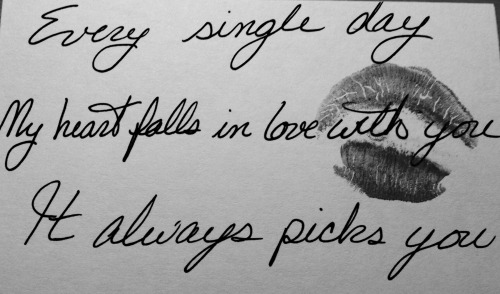 Every single day
My heart falls in love with you
It always picks you